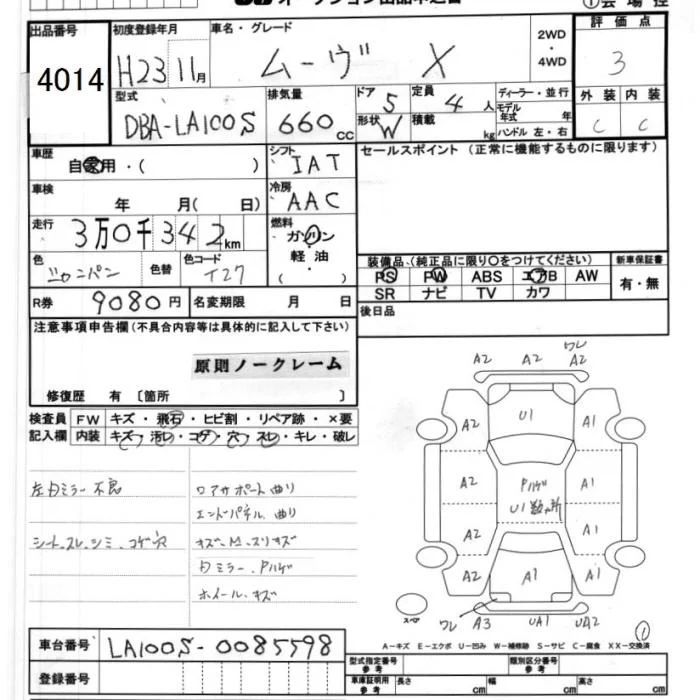 オークション出品申込書 ①会場控
出品番号 4014
初度登録年月 H23 11月
車名・グレード ムーヴ X
2WD・4WD
評価点 3
型式 DBA-LA100S
排気量 660cc
ドア形状 5 W
定員 4人
積載 kg
ディーラー・並行
モデル年式 年
ハンドル 左・右
外装 C 内装 C
車歴 自家用・( )
シフト IAT
セールスポイント(正常に機能するものに限ります)
車検 年 月( 日)
冷房 AAC
走行 3万0千342km
燃料 ガソリン 軽油・( )
色 シャンパン 色替 色コード T27
装備品(純正品に限り○をつけてください) 新車保証書
PS PW ABS エアB AW 有・無
SR ナビ TV カワ
R券 9080円 名変期限 月 日
後日品
注意事項申告欄(不具合内容等は具体的に記入して下さい)
原則ノークレーム
修復歴 有〔箇所 〕
検査員 FW キズ・飛石・ヒビ割・リペア跡・×要
記入欄 内装 キズ・汚レ・コゲ・穴・スレ・キレ・破レ
左Dミラー不良 コアサポート曲り
エンドパネル曲り
シートスレ、シミ、コゲ穴 キズ、M、スリキズ
Dミラー、Pハゲ
ホイールキズ
ワレ
A2 A2 A2
A2 U1 A1
A2 Pハゲ A1
U1数ヶ所
A2 A1
A2 A1 A1
スペア ワレ A3 UA1 UA2
①
車台番号 LA100S-0085598
A-キズ E-エクボ U-凹み W-補修跡 S-サビ C-腐食 XX-交換済
型式指定番号参考 類別区分番号参考
車庫証明用参考 長さ cm 幅 cm 高さ cm